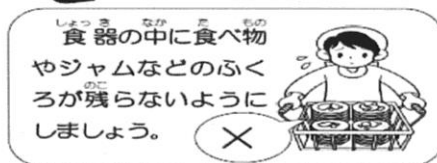 食器の中に食べ物
やジャムなどのふく
ろが残らないように
しましょう。